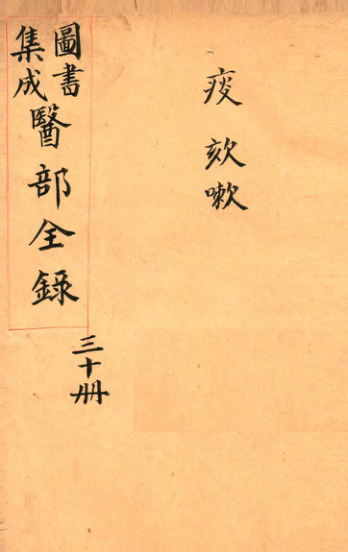 疫 欬嗽
圖書
集成
醫部全錄
三十册